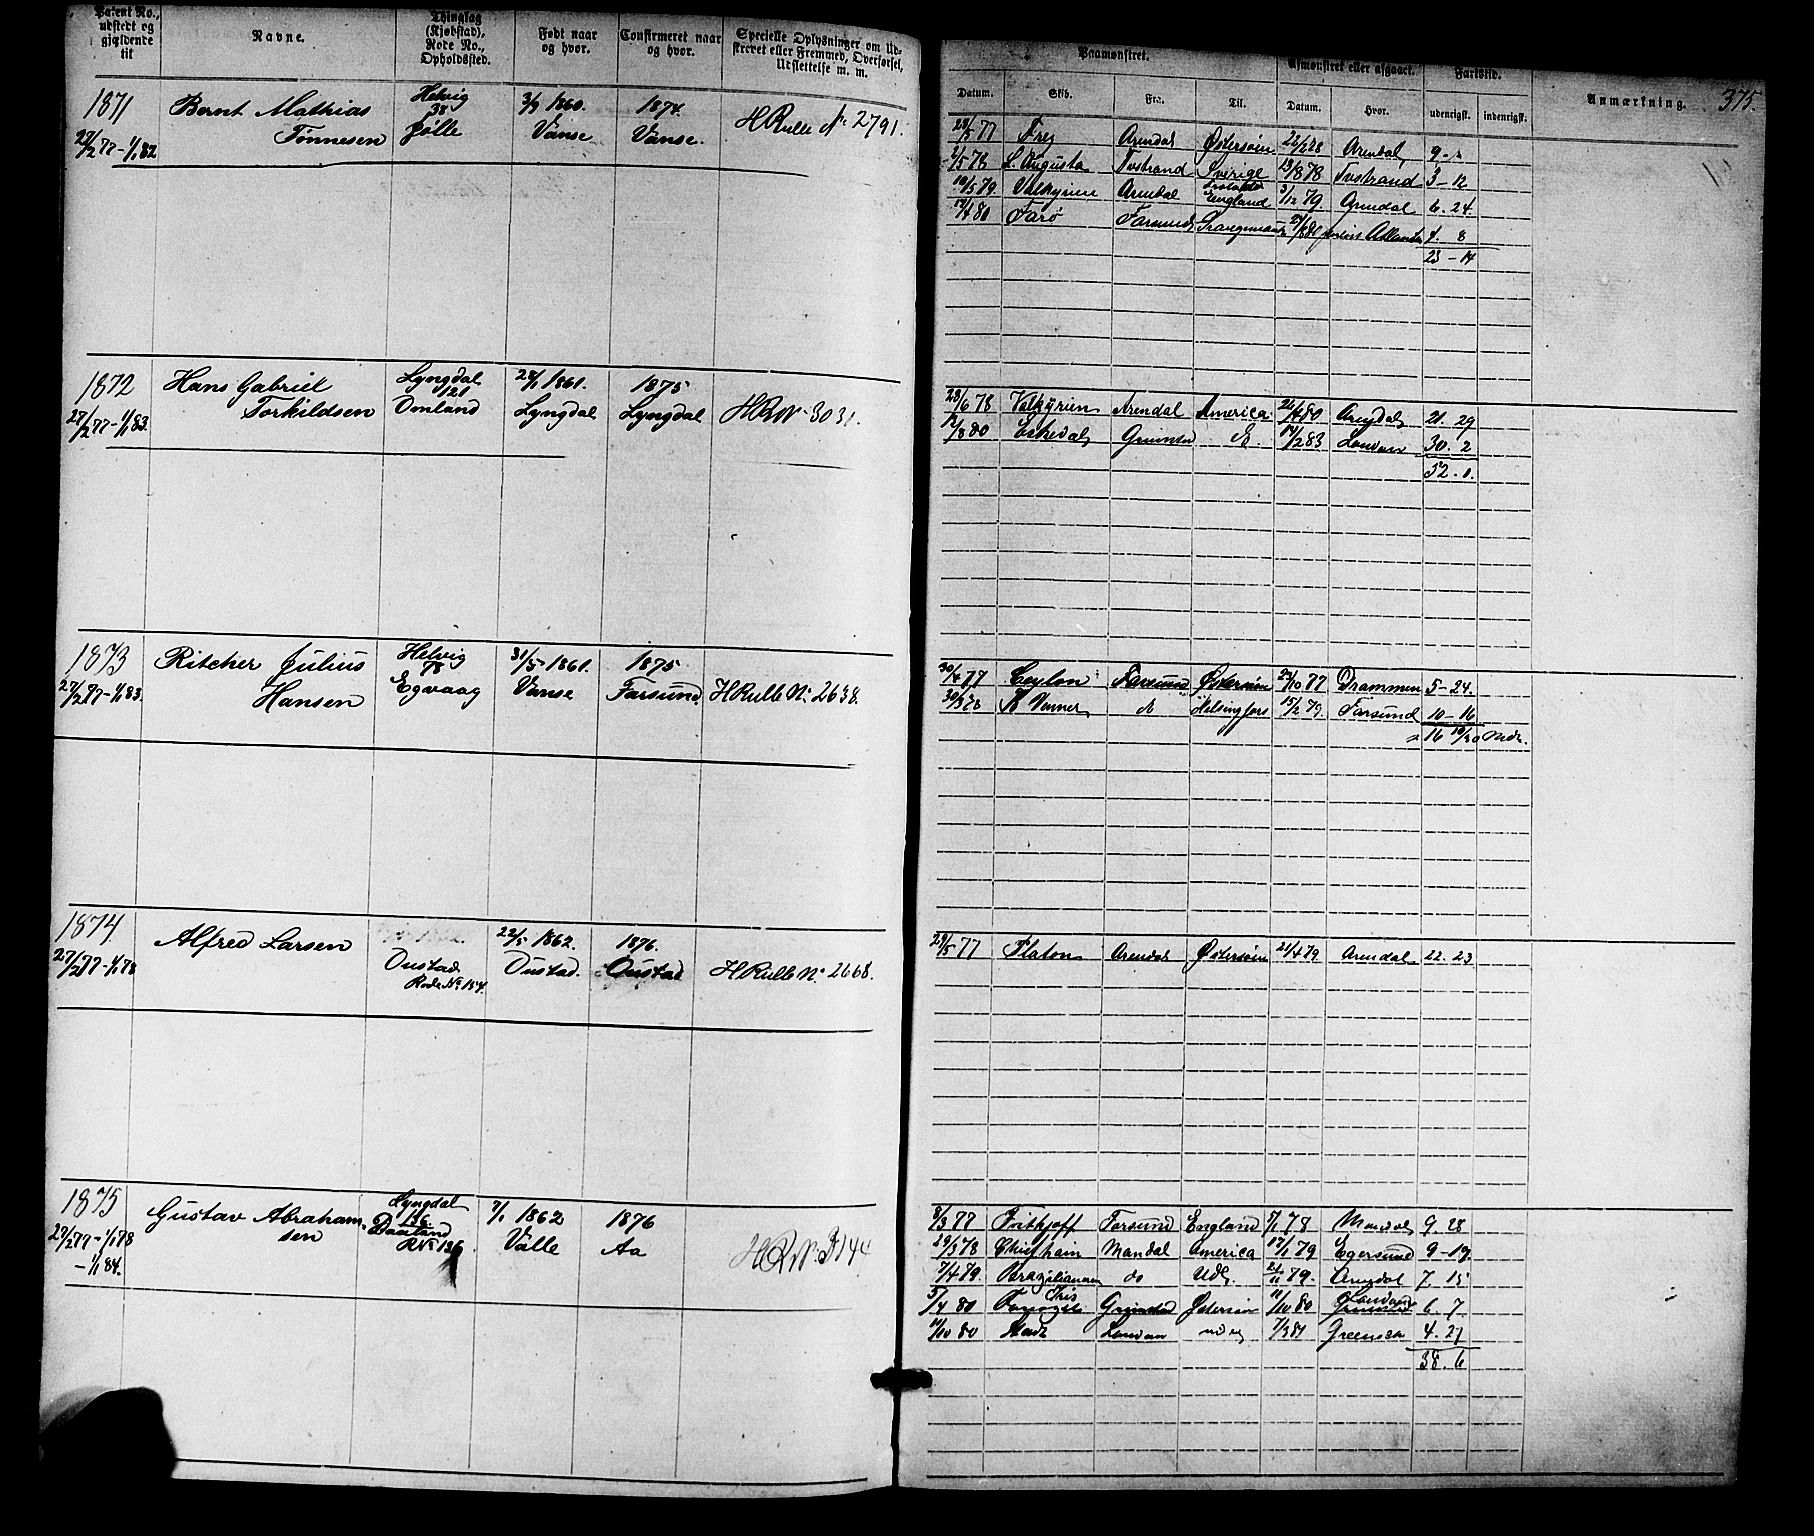 Patent No., udstedt og gjældende til
Navne.
Thinglag (Kjøbstad), Rode No., Opholdssted.
Født naar og hvor.
Confirmeret naar og hvor.
Specielle Oplysninger om Udskrevet eller Fremmed, Overførsel, Udslettelse m. m.
Paamønstret.
Afmønstret eller afgaaet.
Fartstid.
Anmærkning.
375.
Datum.
Skib.
Fra.
Til.
Datum.
Hvor.
udenrigst.
indenrigst.
1871
27/2 77 - 1/1 82
Bernt Mathias
Tønnesen
Helvig
38
Jølle
3/9 1860.
Vanse
1874.
Vanse.
HRulle No 2791.
28/5 77 Frej Arendal Østersøen 22/2 78 Arendal 9 -
2/5 78 L. Augusta Tvstrand Sverige 13/8 78 Tvstrand 3 - 12
10/5 79 Valkyrien Arendal England 3/12 79 Arendal 6. 24
80 Farø Farsund Travemünde 80 4. 8
23 - 14
1872
27/2 77 - 1/1 83.
Hans Gabriel
Torkildsen
Lyngdal
121
Omland
28/1 1861.
Lyngdal
1875
Lyngdal
HRNo 3031.
28/6 78 Valkyrien Arendal America 80 Arendal 21. 29
12/8 80 Eskedal Grimstad 14/2 83 London 30. 2
52. 1.
1873
27/2 77 - 1/1 83.
Ritcher Julius
Hansen
Helvig
78
Egvaag
31/5 1861.
Vanse
1875
Farsund.
HRulle No 2638.
30/4 77 Ceylon Farsund Østersøen 24/10 77 Drammen 5 - 24.
30/3 78 Helsingfors 15/2 79. Farsund 10 - 16
16 10/30 Mdr.
1874
27/2 77 - 1/1 78
Alfred Larsen
Oustad
Rode No 154.
22/5 1862.
Oustad.
1876.
Oustad
HRulle No 2668.
29/5 77 Platon Arendal Østersøen 21/4 79 Arendal 22. 23
1875
27/2 77 - 1/1 78
- 1/1 84.
Gustav Abraham-
sen
Lyngdal
136.
Daaland
RNo 136
7/1 1862
Valle
1876
Aa
HRNo 3144
8/3 77 Frithjoff Farsund England 5/1 78 Mandal 9. 28
29/3 78 Chiefham Mandal America 17/1 79 Egersund 9 - 19
7/4 79. Brazilianeren do Udl. 21/11 79. Arendal 7. 15
5/4 80 Iris Grimstad Østersøen 11/10 80 London 6. 7
11/10 80 London 7/3 81 Greenock 4. 27
38. 6